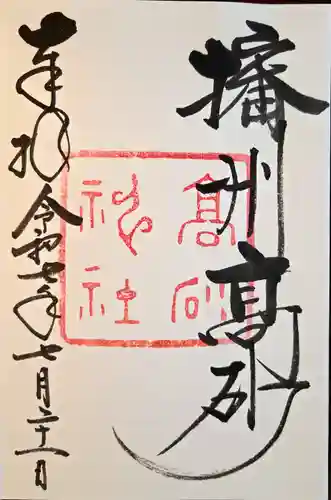 播州高砂
奉拝
令和七年七月二十一日
高砂
神社